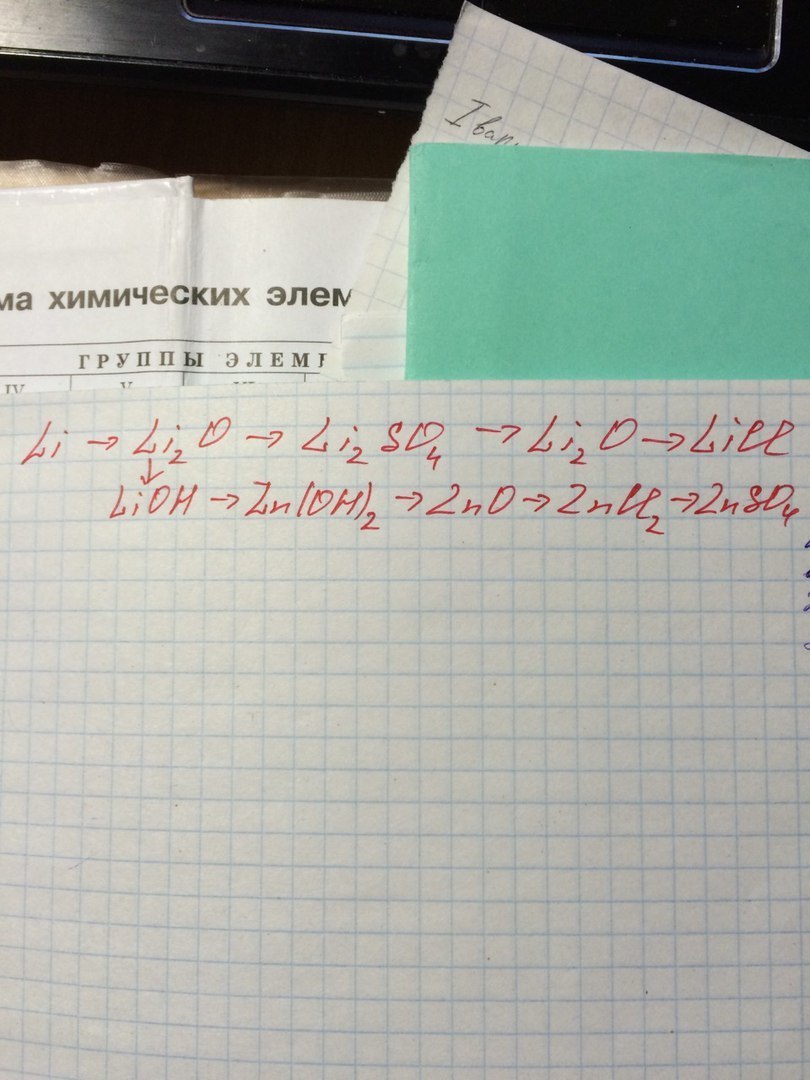 I вар
ма химических элем
ГРУППЫ ЭЛЕМ
IV V VI
Li → Li₂O → Li₂SO₄ → Li₂O → LiCl
↓
LiOH → Zn(OH)₂ → ZnO → ZnCl₂ → ZnSO₄